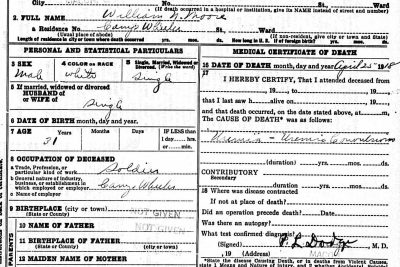 City
(If death occurred in a hospital or institution, give its NAME instead of street and number)
2. FULL NAME William N. Moore
a Residence No. Camp Wheeler St., Ward
(Usual place of abode) (If non-resident, give city or town and State)
Length of residence in city or town where death occurred yrs. mos. ds. How long in U. S. if of foreign birth? yrs. mos. ds.
PERSONAL AND STATISTICAL PARTICULARS
3 SEX 4 COLOR or RACE 5 Single, Married, Widowed or Divorced (Write the word)
Male White Single
5 If married, widowed or divorced
HUSBAND of
or WIFE of Single
6 DATE OF BIRTH month, day and year.
7 AGE Years Months Days IF LESS than
31 1 day hrs.
or min.
8 OCCUPATION OF DECEASED
a Trade, Profession, or
particular kind of work Soldier
b General nature of industry,
business, or establishment in
which employed or employer Camp Wheeler
c Name of employer
9 BIRTHPLACE (city or town)
(State or County) NOT GIVEN
NOT GIVEN
10 NAME OF FATHER
11 BIRTHPLACE OF FATHER (city or town)
(State or County)
12 MAIDEN NAME OF MOTHER
PARENTS
MEDICAL CERTIFICATE OF DEATH
16 DATE OF DEATH month, day and year April 25 1918
17
I HEREBY CERTIFY, That I attended deceased from
19 , to 19
that I last saw h alive on 19
and that death occurred, on the date stated above, at m.
The CAUSE OF DEATH* was as follows:
Uremia - Uremic Convulsions
(duration) yrs. mos. ds.
CONTRIBUTORY
Secondary
(duration) yrs. mos. ds.
18 Where was disease contracted
If not at place of death?
Did an operation precede death? Date
Was there an autopsy?
What test confirmed diagnosis?
(Signed) M. D.
19 (Address)
*State the Disease Causing Death, or in deaths from Violent Causes, state
1 Means and Nature of Injury, and 2 whether Accidental,